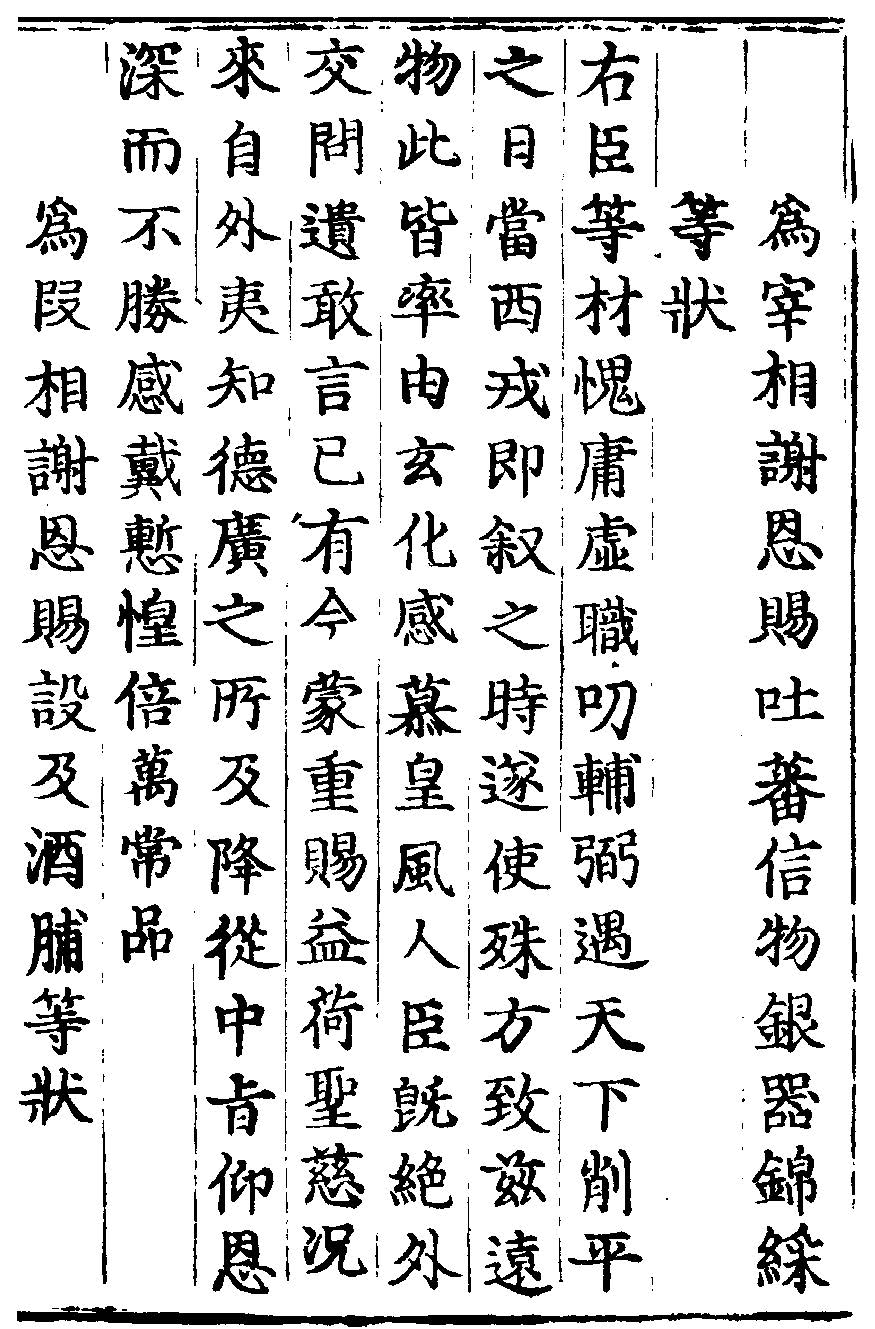 爲宰相謝恩賜吐蕃信物銀器錦綵
等狀
右臣等材愧庸虛職叨輔弼遇天下削平
之日當西戎即叙之時遂使殊方致兹遠
物此皆率由玄化感慕皇風人臣旣絕外
交問遺敢言已有今蒙重賜益荷聖慈況
來自外夷知德廣之所及降從中旨仰恩
深而不勝感戴慙惶倍萬常品
爲段相謝恩賜設及酒脯等狀